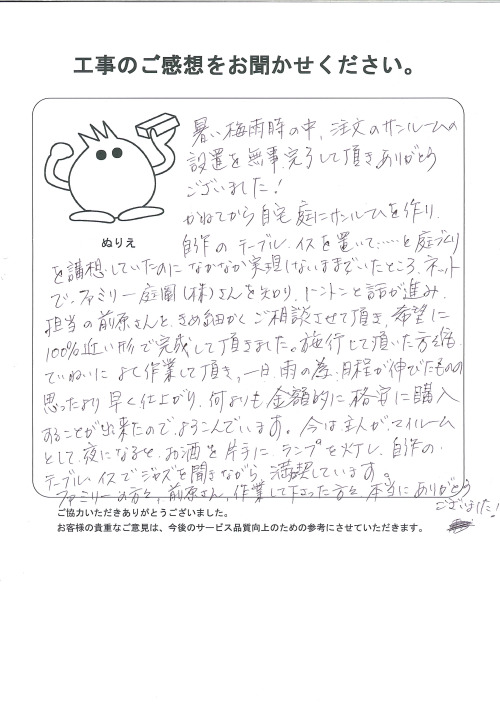 工事のご感想をお聞かせください。
暑い梅雨時の中、注文のサンルームの
設置を無事完了して頂きありがとう
ございました!
ぬりえ
かねてから自宅庭にサンルームを作り、
自作のテーブル、イスを置いて……と庭づくり
を構想していたのになかなか実現しないままでいたところ、ネット
で、ファミリー庭園(株)さんを知り、トントンと話が進み、
担当の前原さんと、きめ細かくご相談させて頂き、希望に
100%近い形で完成して頂きました。施行して頂いた方も
ていねいによく作業して頂き、一日、雨の為、日程が伸びたものの
思ったより早く仕上がり、何よりも金額的に格安に購入
することが出来たので、よろこんでいます。今は主人が、マイルーム
として、夜になると、お酒を片手に、ランプを灯し、自作の
テーブル、イスでジャズを聞きながら、満喫しています。
ファミリーの方々、前原さん、作業して下さった方々、本当にありがとう
ございました!
ご協力いただきありがとうございました。
お客様の貴重なご意見は、今後のサービス品質向上のための参考にさせていただきます。